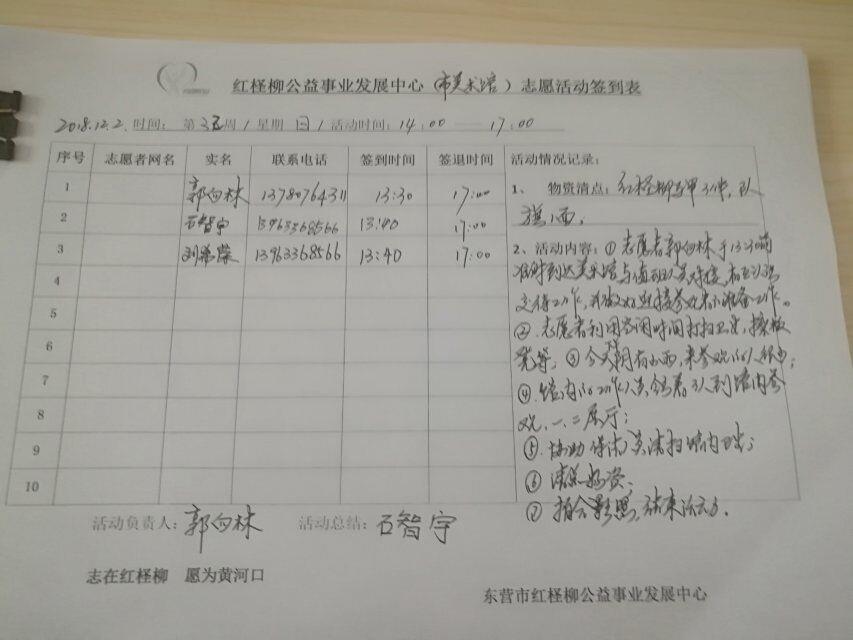 红柽柳公益事业发展中心（市美术馆）志愿活动签到表
2018.12.2. 时间：第 周/星期 日/活动时间：14:00 — 17:00
序号 志愿者网名 实名 联系电话 签到时间 签退时间 活动情况记录：
1 郭向林 1378076431 13:30 17:00
2 石智宇 13963368566 13:40 17:00
3 刘希荣 13963368566 13:40 17:00
4
5
6
7
8
9
10
1、 物资清点：红柽柳马甲3件，队
旗1面。
2、活动内容：①志愿者郭向林于13:30前
准时到达美术馆与值班人员对接，相互认识
交待工作，并做好迎接参观者的准备工作。
②志愿者利用空闲时间打扫卫生，擦板
凳等，③今天阴有小雨，来参观的人很少；
④馆内的工作人员领着3人到馆内参
观，一、二展厅；
⑤协助保洁员清扫馆内卫生；
⑥清点物资、
⑦拍合影照，结束活动。
活动负责人：郭向林 活动总结：石智宇
志在红柽柳 愿为黄河口
东营市红柽柳公益事业发展中心